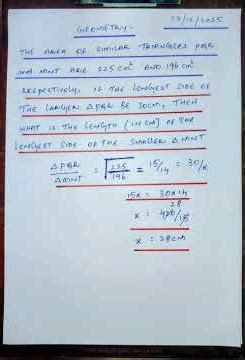 17/12/2025
GEOMETRY:-
THE AREA OF SIMILAR TRIANGLES PQR
and MNT ARE 225 cm² AND 196 cm²
RESPECTIVELY. IF THE LONGEST SIDE OF
THE LARGER △ PQR BE 30CM, THEN
WHAT IS THE LENGTH (IN CM) OF THE
LONGEST SIDE OF THE SMALLER △ MNT
△ PQR / △ MNT = √225/196 = 15/14 = 30/x
15x = 30×14
28
x = 420/15
x = 28cm